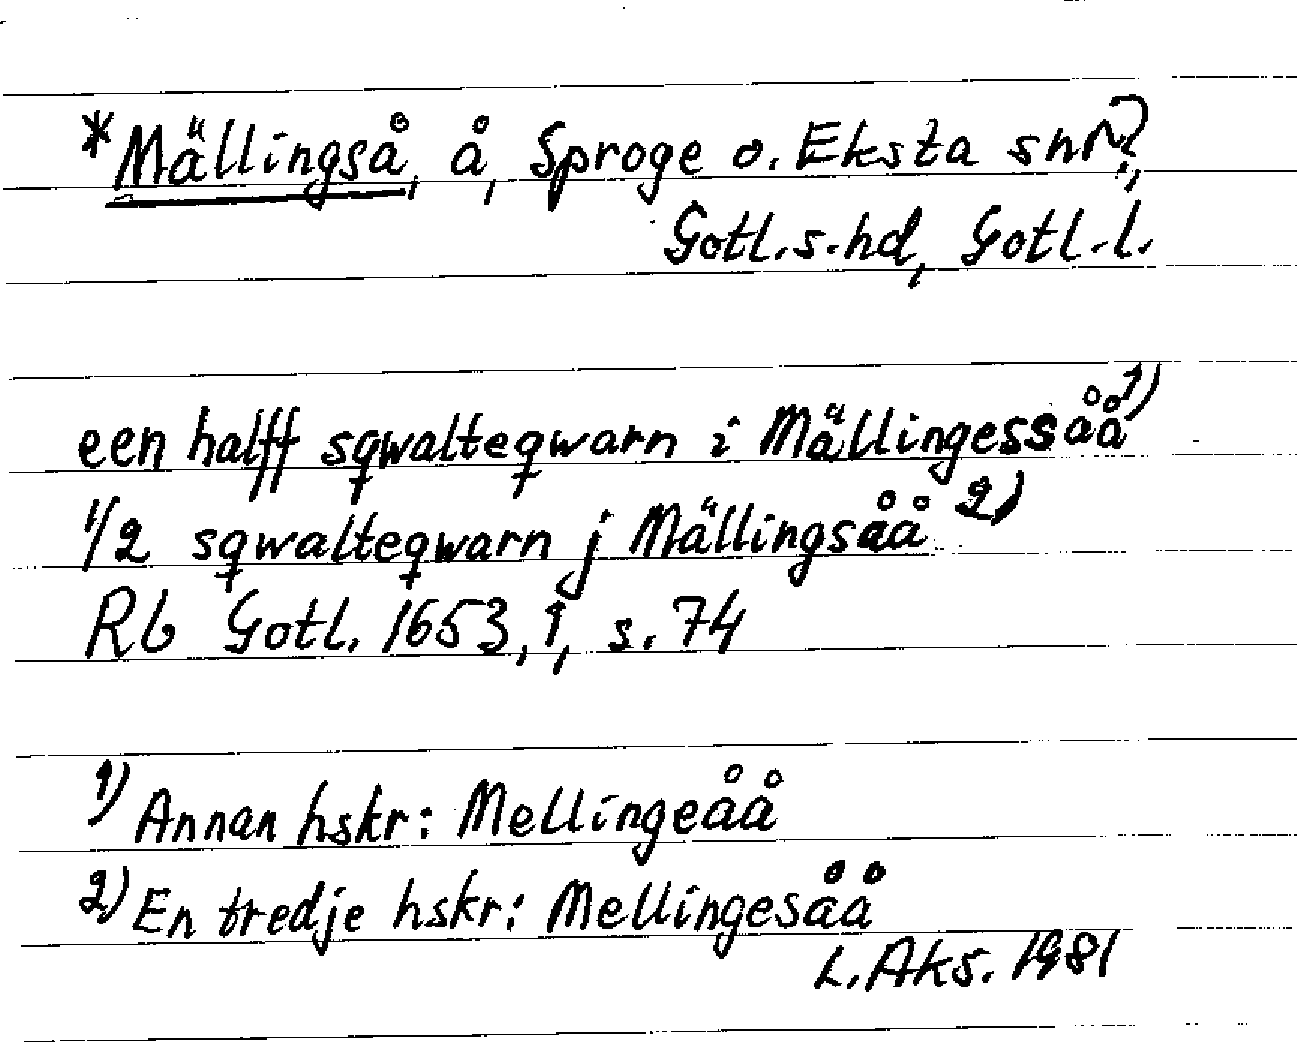 *Mällingså, å, Sproge o. Eksta snr?,
Gotl.s.hd, Gotl.l.
een halff sqwalteqwarn i Mällingessåå 1)
1/2 sqwalteqwarn j Mällingsåå 2)
Rb Gotl. 1653,1, s. 74
1) Annan hskr: Mellingeåå
2) En tredje hskr: Mellingesåå
L. Aks. 1981